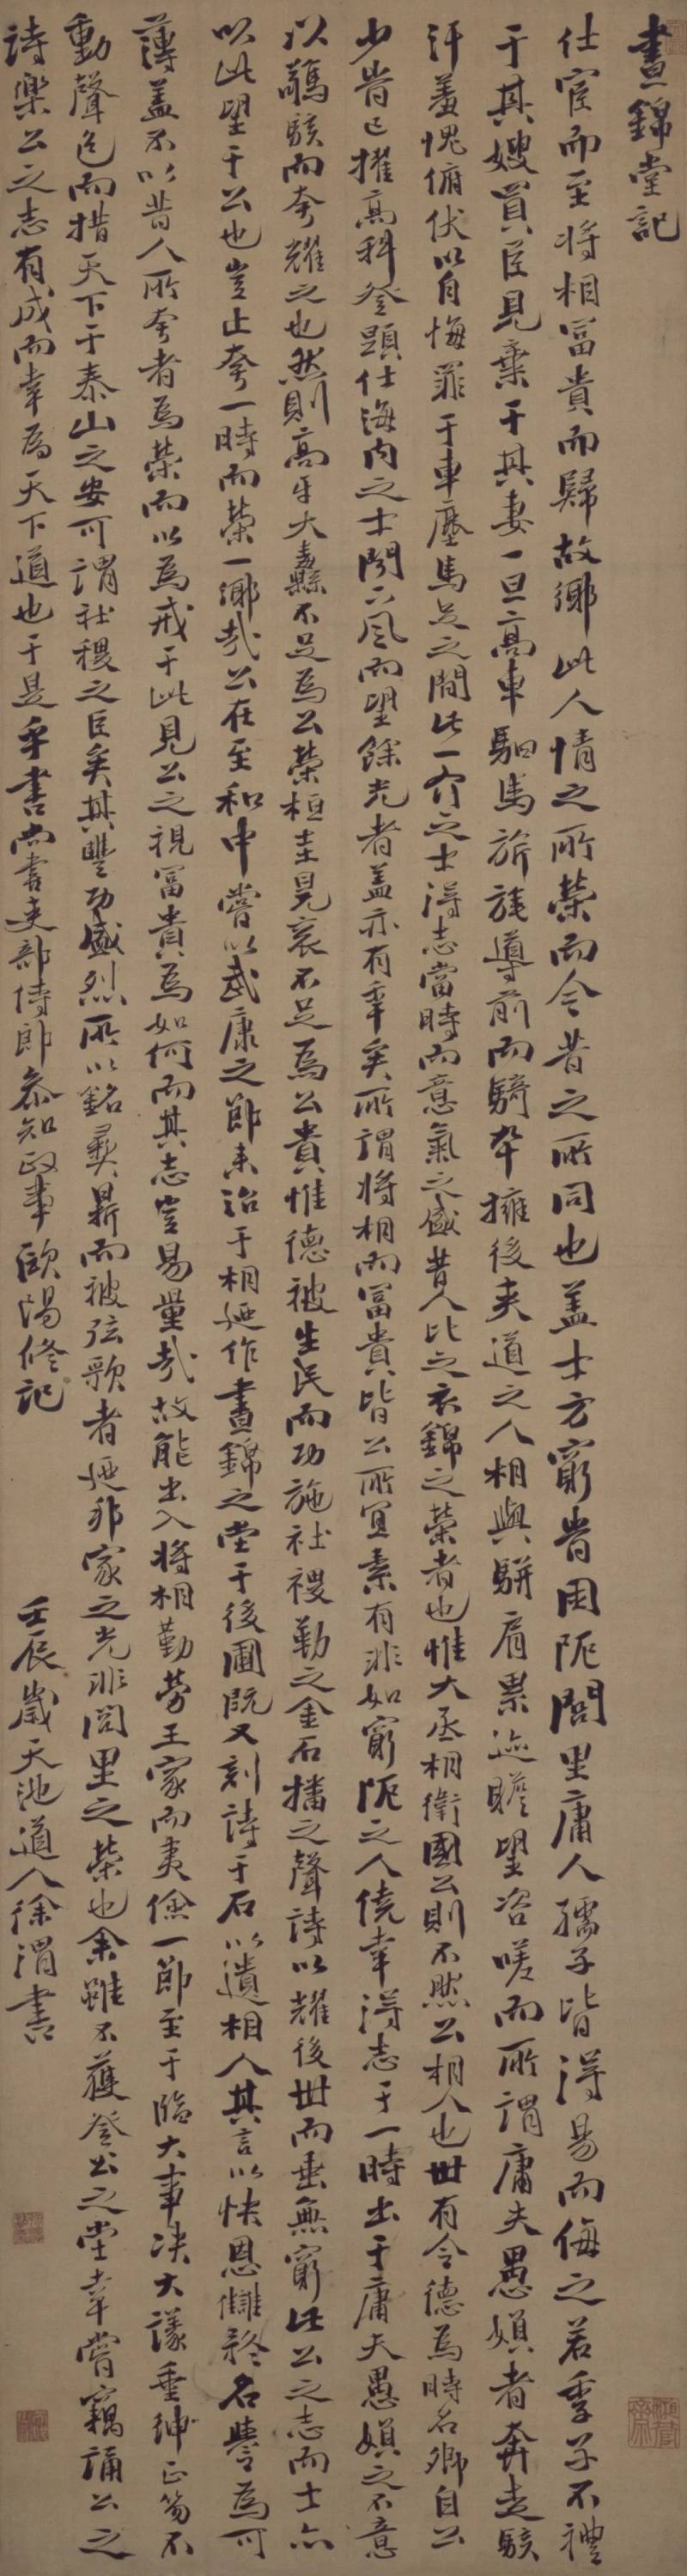 晝錦堂記
仕宦而至將相富貴而歸故鄉此人情之所榮而今昔之所同也蓋士方窮時困阨閭里庸人孺子皆得易而侮之若季子不禮
于其嫂買臣見棄于其妻一旦高車駟馬旂旄導前而騎卒擁後夾道之人相與駢肩累迹瞻望咨嗟而所謂庸夫愚婦者奔走駭
汗羞愧俯伏以自悔罪于車塵馬足之間此一介之士得志當時而意氣之盛昔人比之衣錦之榮者也惟大丞相衛國公則不然公相人也世有令德為時名卿自公
少時已擢高科登顯仕海內之士聞下風而望餘光者蓋亦有年矣所謂將相而富貴皆公所宜素有非如窮阨之人僥幸得志于一時出于庸夫愚婦之不意
以驚駭而夸耀之也然則高牙大纛不足為公榮桓圭冕袞不足為公貴惟德被生民而功施社稷勒之金石播之聲詩以耀後世而垂無窮此公之志而士亦
以此望于公也豈止夸一時而榮一鄉哉公在至和中嘗以武康之節來治于相迺作晝錦之堂于後圃既又刻詩于石以遺相人其言以快恩讎矜名譽為可
薄蓋不以昔人所夸者為榮而以為戒于此見公之視富貴為如何而其志豈易量哉故能出入將相勤勞王家而夷險一節至于臨大事決大議垂紳正笏不
動聲色而措天下于泰山之安可謂社稷之臣矣其豐功盛烈所以銘彝鼎而被弦歌者迺邦家之光非閭里之榮也余雖不獲登公之堂幸嘗竊誦公之
詩樂公之志有成而幸為天下道也于是乎書尚書吏部侍郎參知政事歐陽修記
壬辰歲天池道人徐渭書